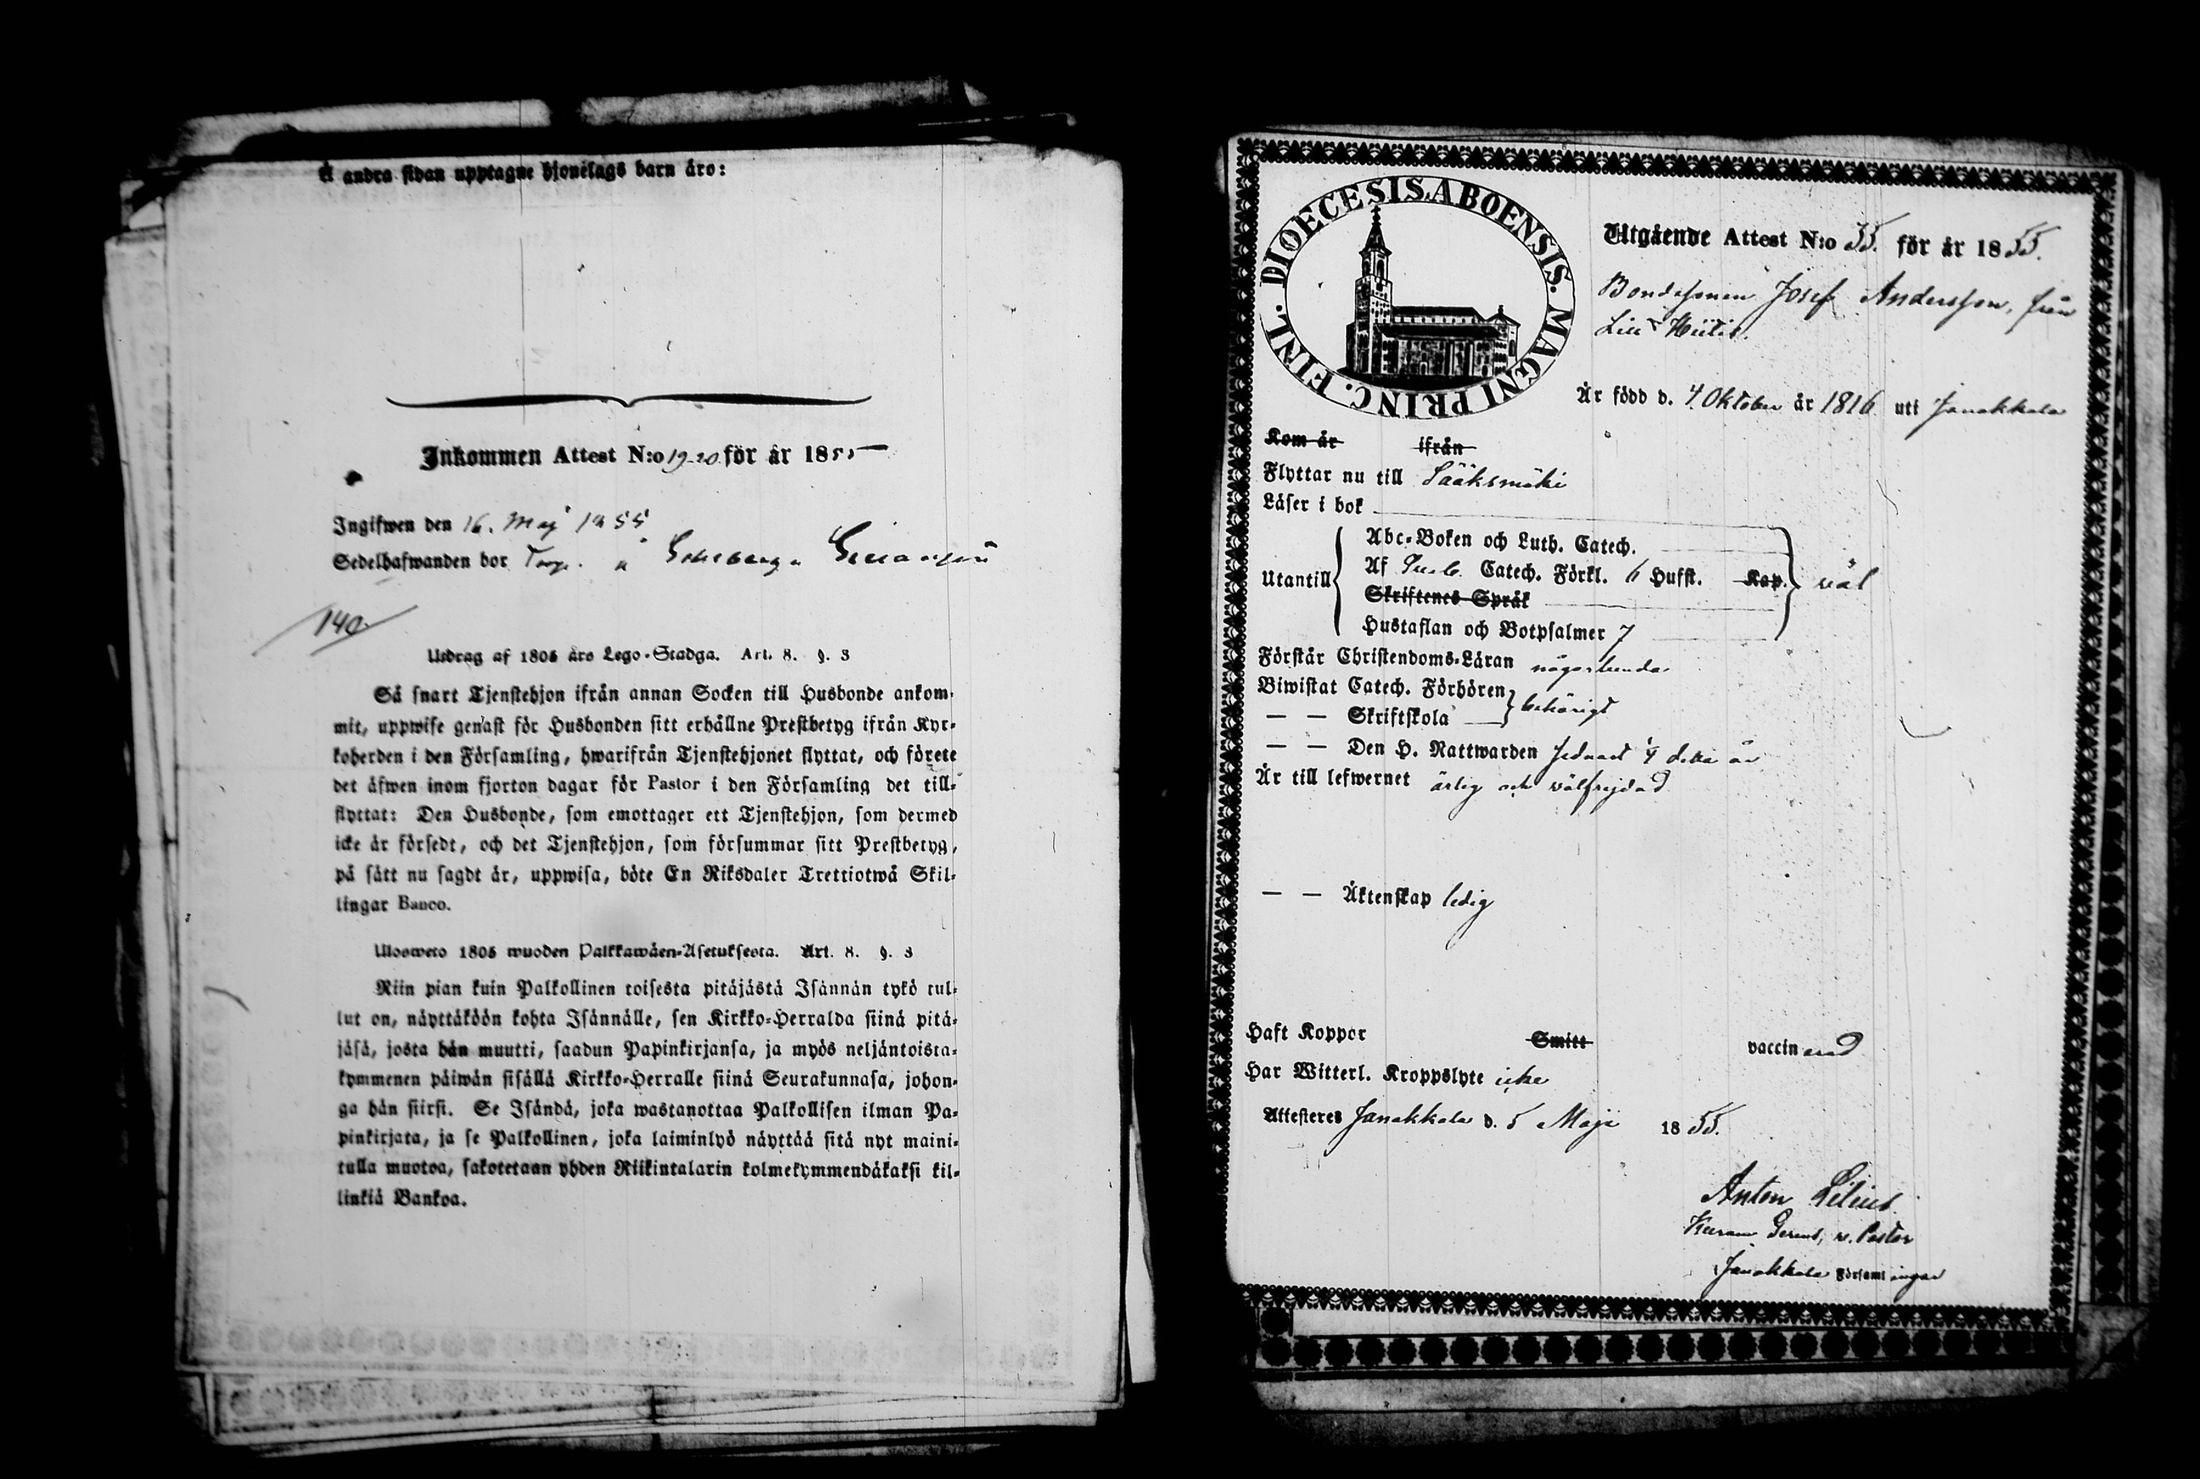 Å andra sidan upptagne hjonelags barn äro:
Inkommen Attest N:o 19-20 för år 1855
Ingifwen den 16. Maj 1855
Sedelhafwanden bor Torp. å
140
Utdrag af 1805 års Lego-Stadga. Art. 8. §. 3
Så snart Tjenstehjon ifrån annan Socken till Husbonde ankom-
mit, uppwise genast för Husbonden sitt erhållne Prestbetyg ifrån Kyr-
koherden i den Församling, hwarifrån Tjenstehjonet flyttat, och förete
det äfwen inom fjorton dagar för Pastor i den Församling det till-
flyttat: Den Husbonde, som emottager ett Tjenstehjon, som dermed
icke är försedt, och det Tjenstehjon, som försummar sitt Prestbetyg,
på sätt nu sagdt är, uppwisa, böte En Riksdaler Trettiotwå Skil-
lingar Banco.
Ulosweto 1805 wuoden Palkkawäen-Asetuksesta. Art. 8. §. 3
Niin pian kuin Palkollinen toisesta pitäjästä Isännän tykö tul-
lut on, näyttäköön kohta Isännälle, sen Kirkko-Herralda siinä pitä-
jäsä, josta hän muutti, saadun Papinkirjansa, ja myös neljäntoista-
kymmenen päiwän sisällä Kirkko-Herralle siinä Seurakunnasa, johon-
ga hän siirsi. Se Isändä, joka wastanottaa Palkollisen ilman Pa-
pinkirjata, ja se Palkollinen, joka laiminlyö näyttää sitä nyt maini-
tulla muotoa, sakotetaan yhden Riikintalarin kolmekymmendäkaksi kil-
linkiä Bankoa.
DIOECESIS ABOENSIS. MAGNI PRINC. FINL.
Utgående Attest N:o 55. för år 1855.
Bondesonen Josef Andersson, från
Lill Hiitis.
Är född d. 4 Oktober år 1816 uti Janakkala
Kom år ifrån
Flyttar nu till Sääksmäki
Läser i bok
Abc-Boken och Luth. Catech.
Utantill Af Catech. Förkl. 6 Hufst. Kap. väl
Skriftenes Språk
Hustaflan och Botpsalmer 7
Förstår Christendoms-Läran någorlunda
Biwistat Catech. Förhören behörigt
— — Skriftskola
— — Den H. Nattwarden sednast detta år
Är till lefwernet ärlig och välfrejdad
— — Äktenskap ledig
Haft Koppor Smitt vaccinerad
Har Witterl. Kroppslyte icke
Attesteres Janakkala d. 5 Maji 1855.
Anton Lilius
Pastor
Janakkala Församlingar